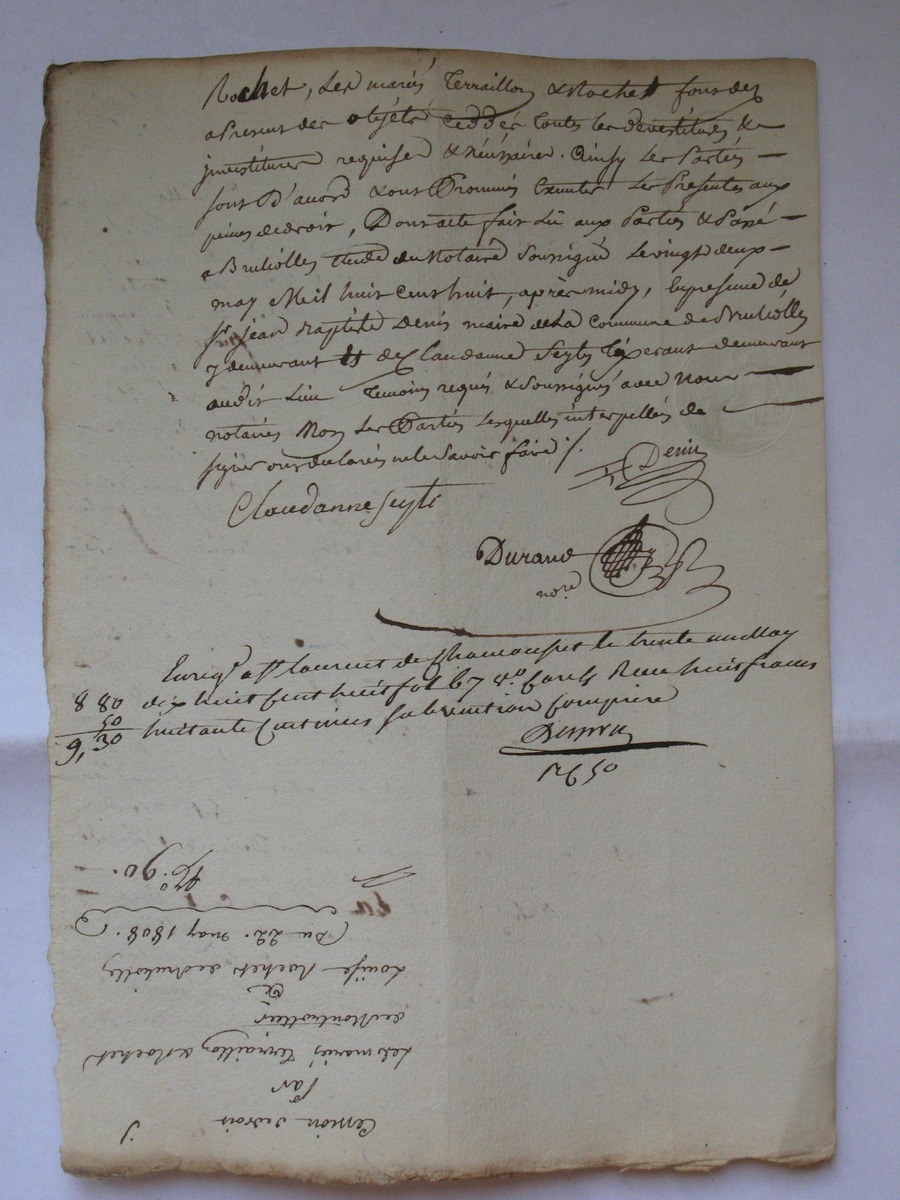 Rochet, Les mariés Terraillon & Rochet font dez
a Present des objets Ceddés toutes les devestitures &
jnvestitures requises & néssaire. Ainsy les Partiés —
sont D'acord & ont Prommis Exécuter Les Présentes aux
peines de droit, Dont acte fait Lû aux Partiés & Passé —
a Brulliolles Etude du Notaire Soussigné Le vingt deux —
may Mil huit Cent huit, après midy, En presence de
Sr. jean Baptiste Denis maire de La Commune de Brulliolles
y demeurant & de Claudanne Seyti demeurant
audit Lieu Temoins requis & Soussignés avec Nous
notaires Non Les Partiés Lesquelles interpellés de
signer ont déclarés ne le Savoir faire ./.
Denis
Claudanne Seyti
Durand
nore
Enregé a St laurent de Chamousset le trente un May
8 80 dix huit Cent huit fol 67 Vo. Care 5 Reçu huit francs
50 huitante Centimes subvention Comprise
9, 30
No. 90.
Du 22. may 1808.
Louise Rochet de Brulliolles
&
de Montrottier
Les mariés Terraillon & Rochet
Par
Cession de droit